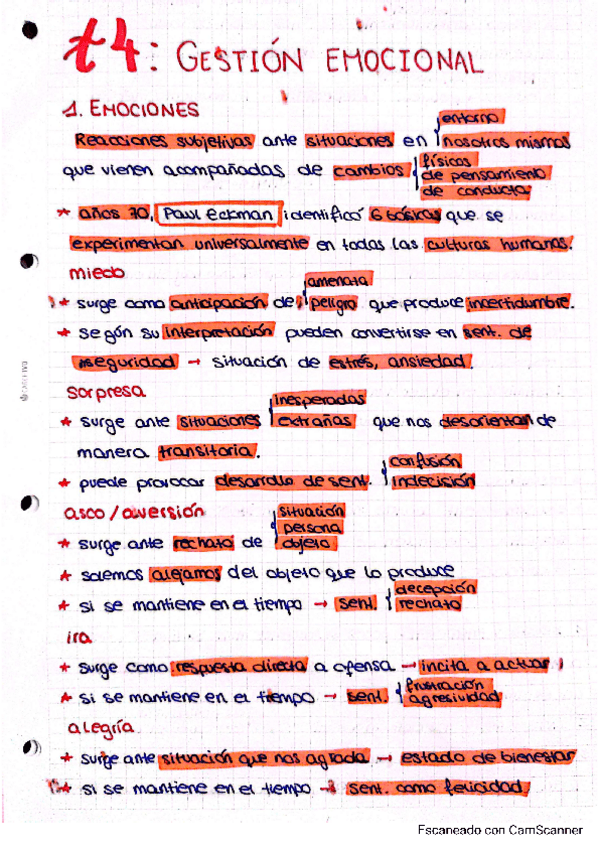 t4: GESTIÓN EMOCIONAL
1. EMOCIONES
Reacciones subjetivas ante situaciones en { entorno
nosotros mismos
que vienen acompañadas de cambios { físicos
de pensamiento
de conducta
* años 70, Paul Eckman identificó 6 básicas que se
experimentan universalmente en todas las culturas humanas.
miedo
* surge como anticipación de { amenaza
peligro que produce incertidumbre.
* según su interpretación pueden convertirse en sent. de
inseguridad → situación de estrés, ansiedad.
sorpresa
* surge ante situaciones { inesperadas
extrañas que nos desorientan de
manera transitoria.
* puede provocar desarrollo de sent. { confusión
indecisión
asco/aversión
* surge ante rechazo de { situación
persona
objeto
* solemos alejarnos del objeto que lo produce
* si se mantiene en el tiempo → sent. { decepción
rechazo
ira
* surge como respuesta directa a ofensa → incita a actuar
* si se mantiene en el tiempo → sent. { frustración
agresividad
alegría
* surge ante situación que nos agrada → estado de bienestar
* si se mantiene en el tiempo → sent. como felicidad
Escaneado con CamScanner